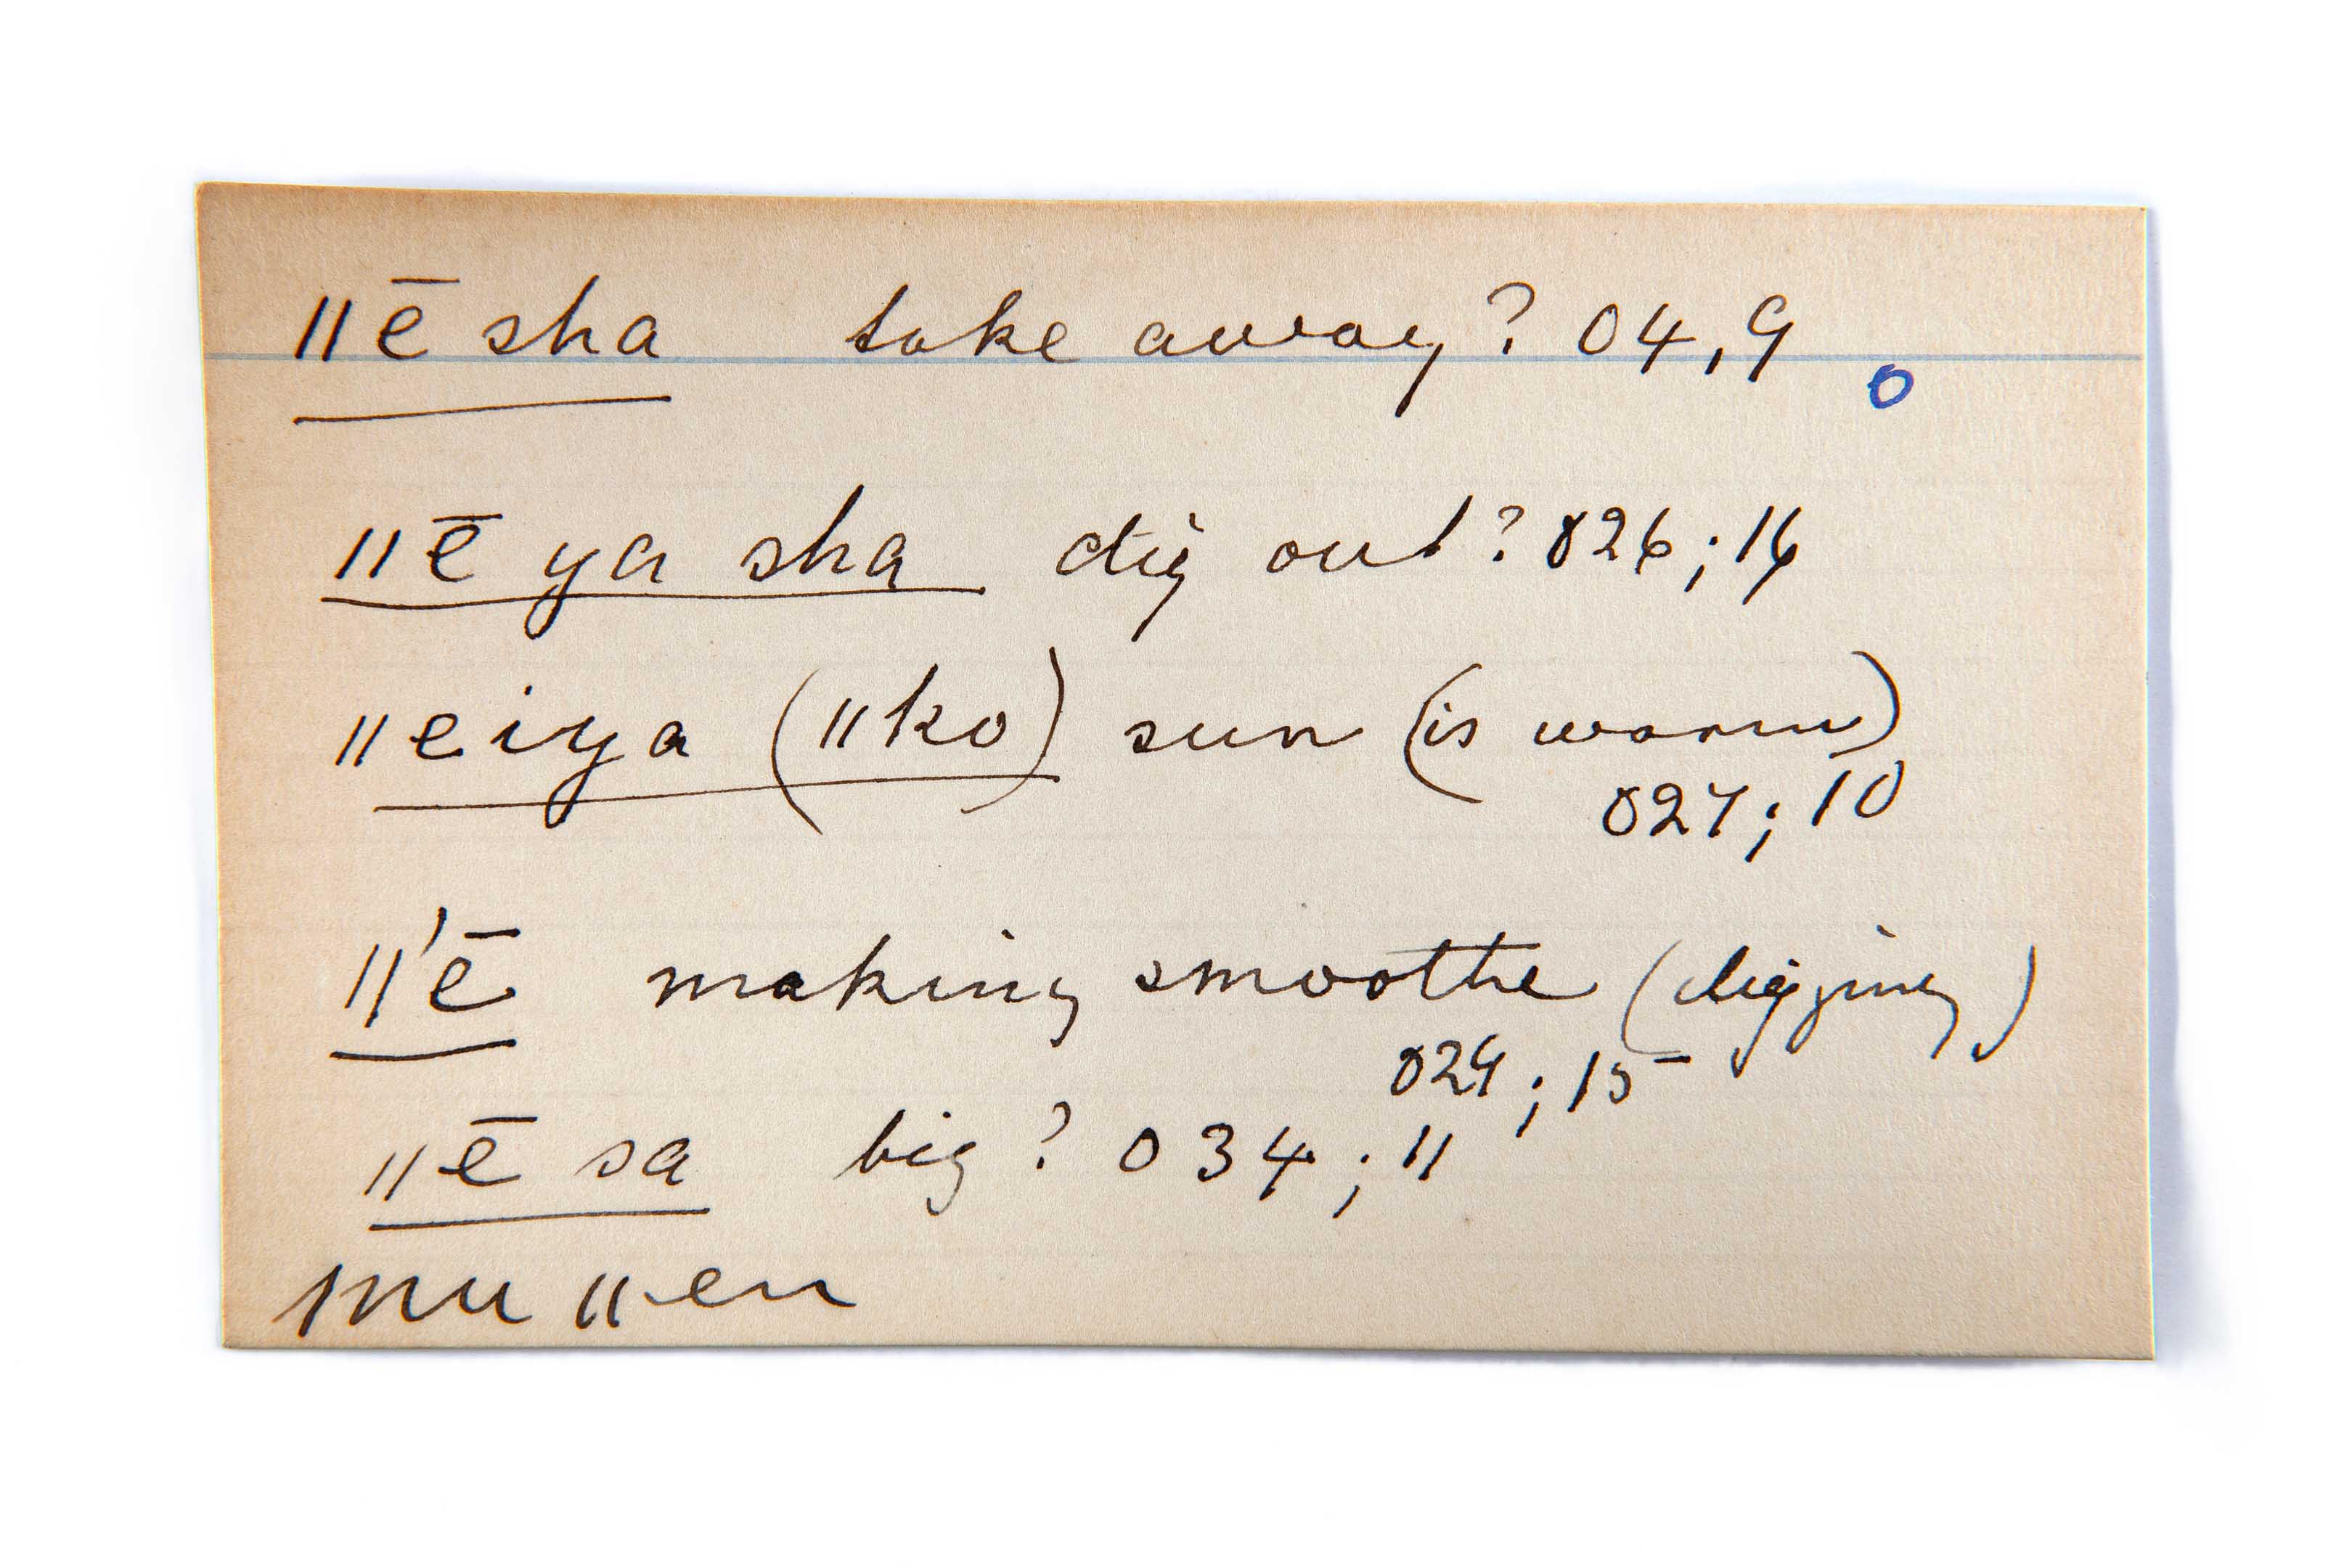 ǁē sha take away? 04,9 o
ǁē ya sha dig out? 026;16
ǁeiya (ǁko) sun (is warm)
027;10
ǁ'ē making smoothe (digging)
029;15
ǁē sa big? 034;11
mu ǁen